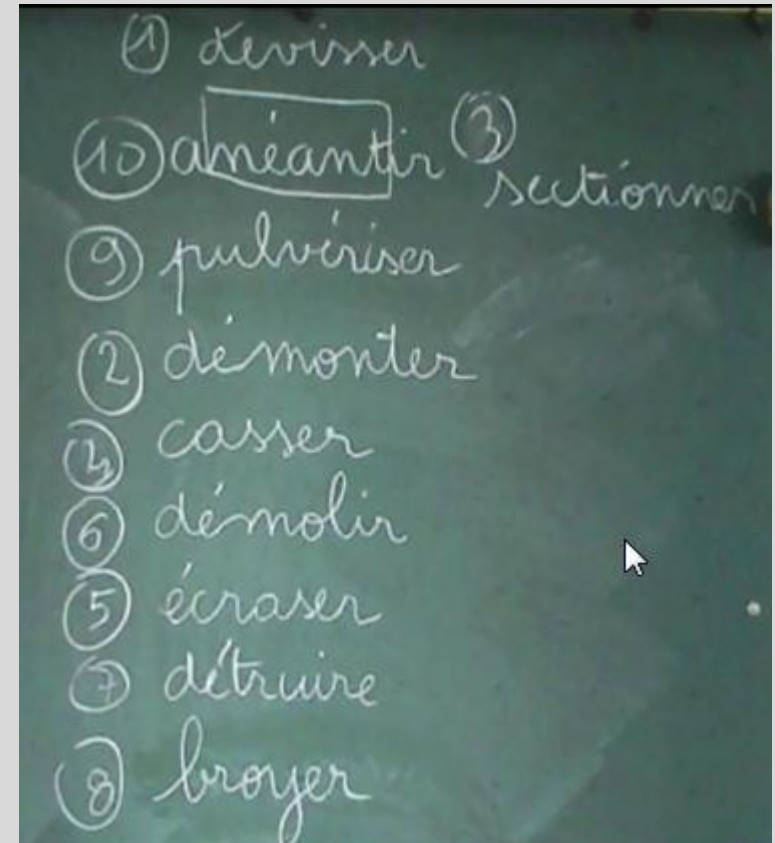 ① dévisser
⑩ anéantir ③
sectionner
⑨ pulvériser
② démonter
④ casser
⑥ démolir
⑤ écraser
⑦ détruire
⑧ broyer